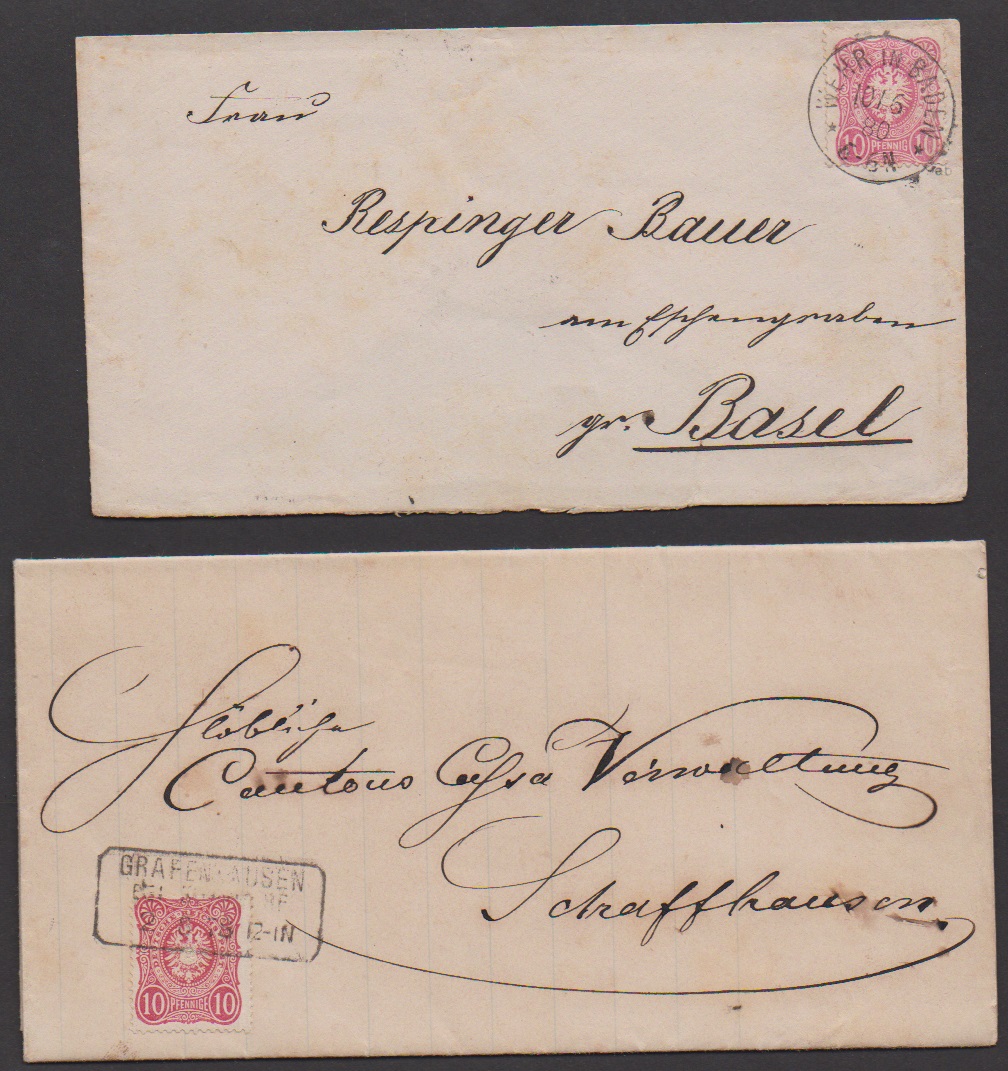 Frau
Respinger Bauer
am Eschengraben
gr. Basel
WEHR IN BADEN
10/6
80
-8N
10 PFENNIG 10
Löbliche
Cantons Cassa Verwaltung
Schaffhausen.
GRAFENHAUSEN
12-1N
10 PFENNIGE 10